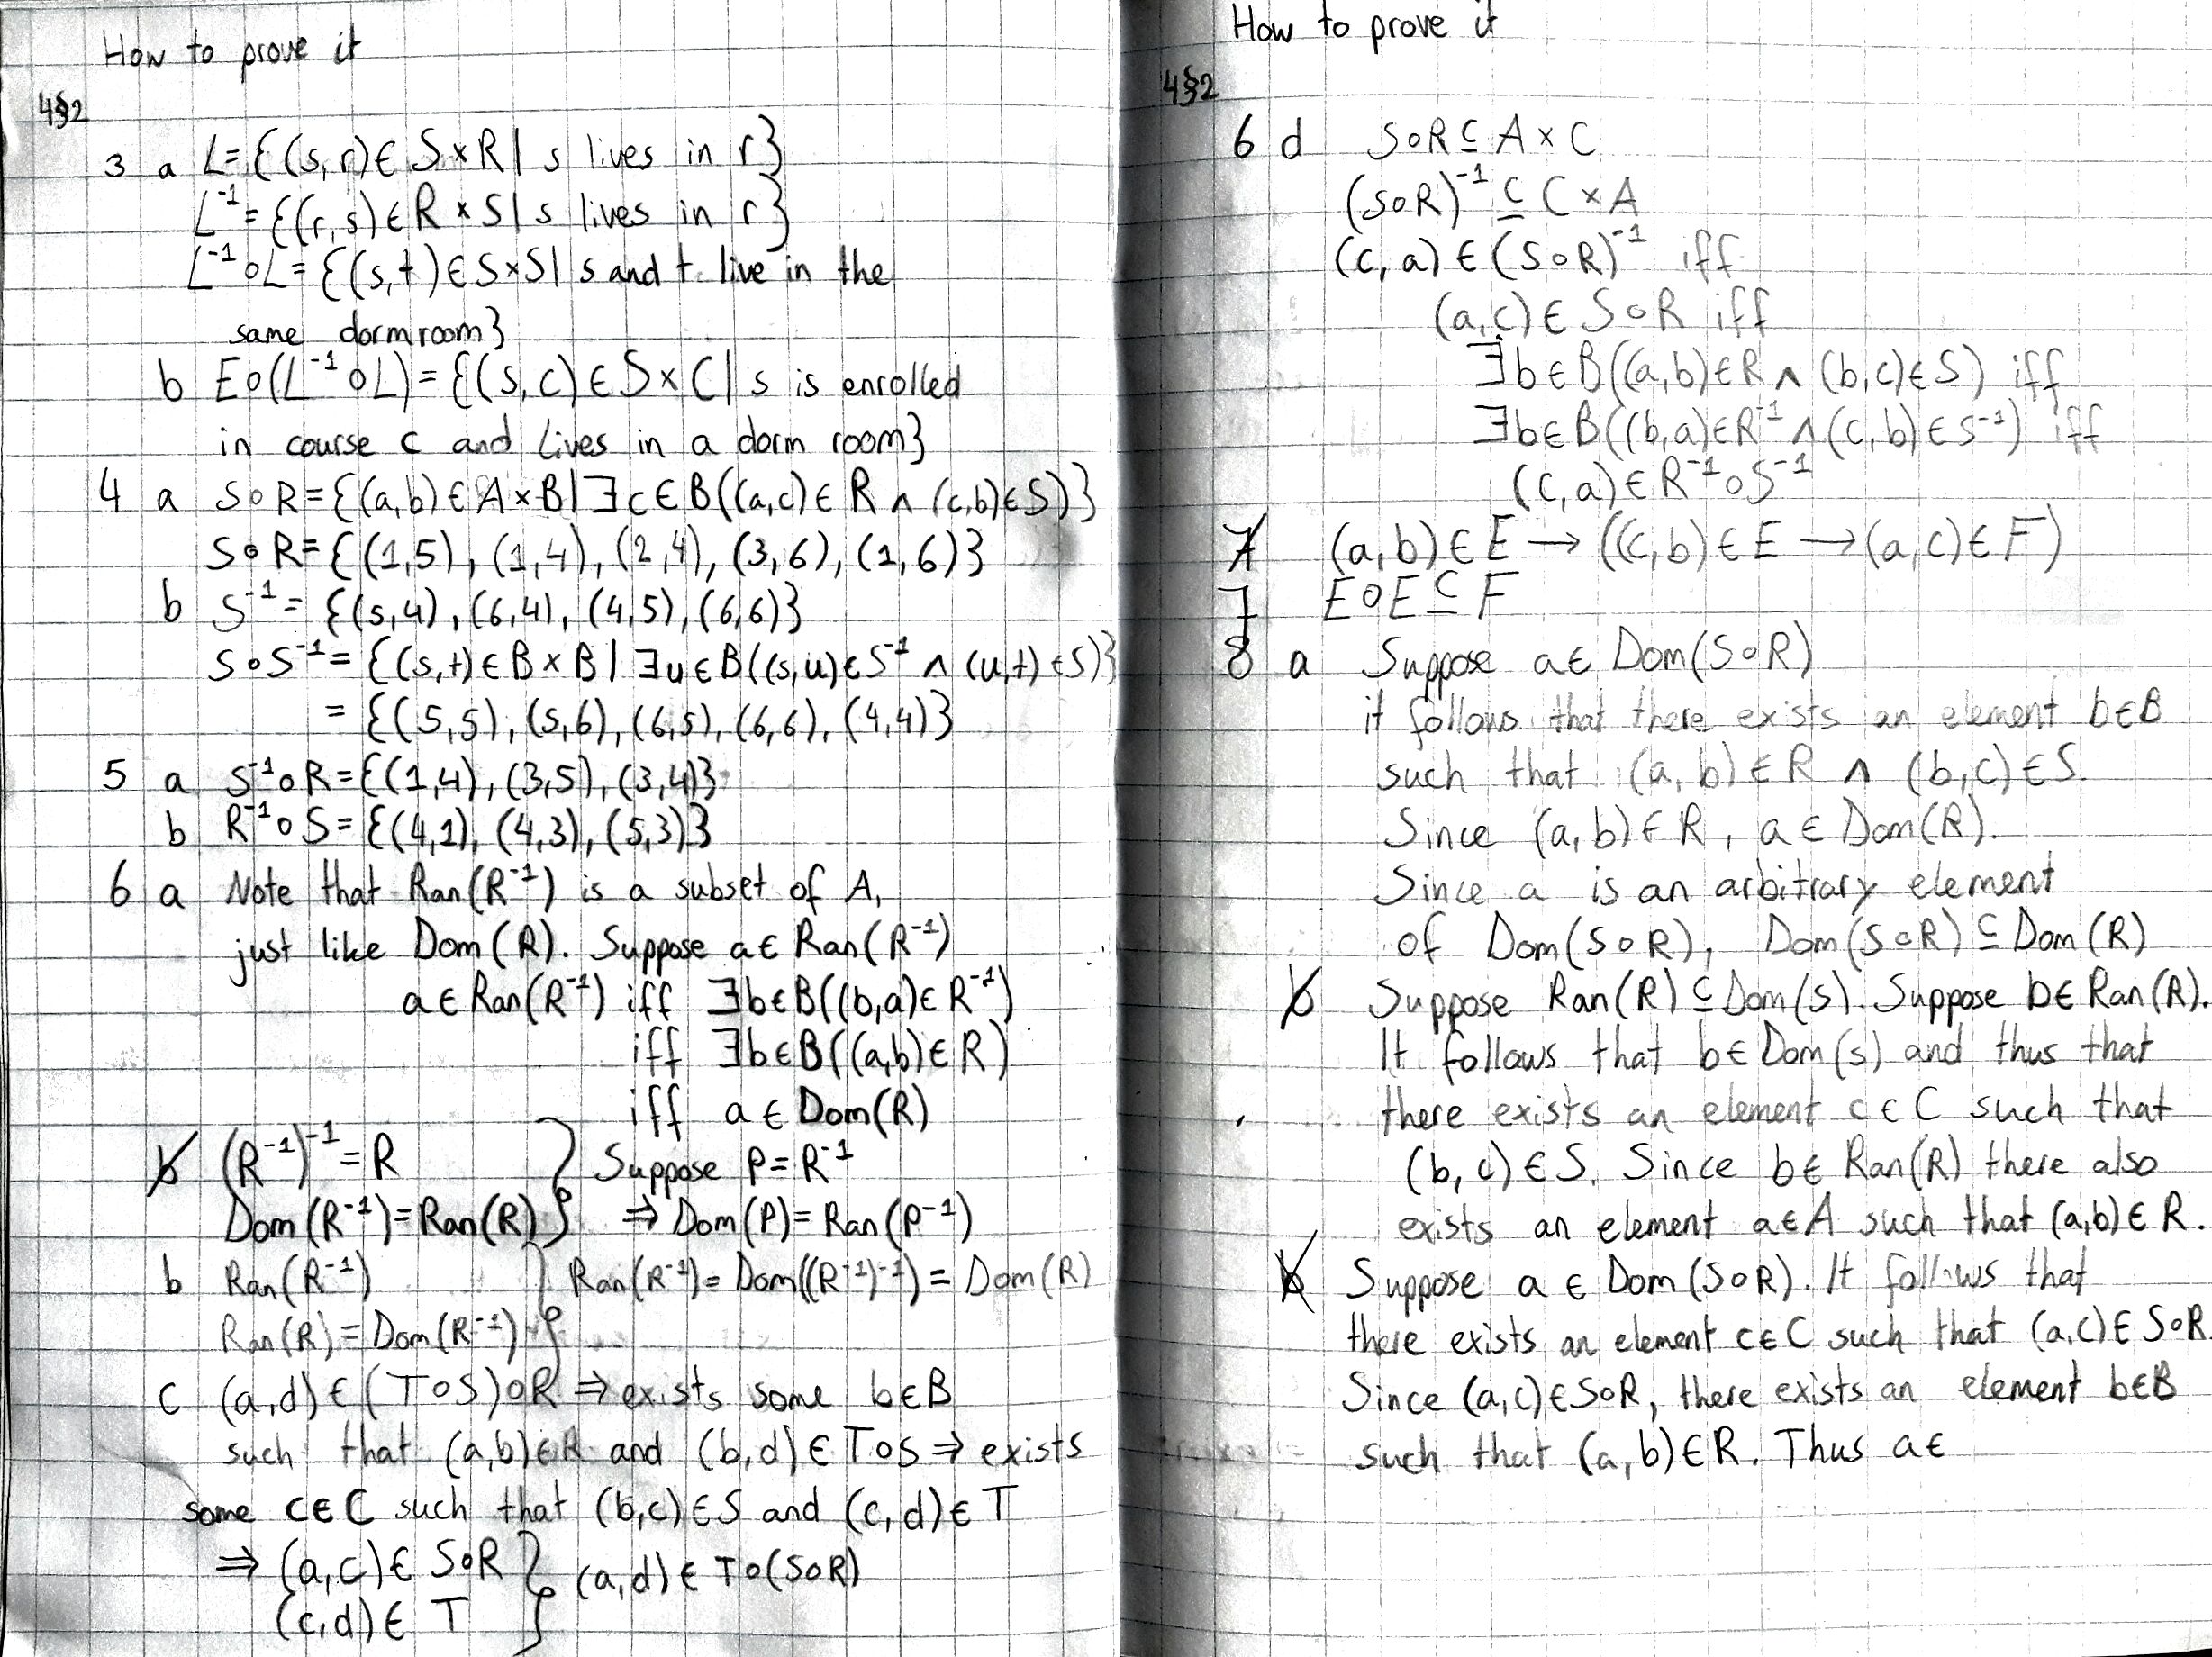 How to prove it
4§2
3 a L={(s,r)∈S×R| s lives in r}
L⁻¹={(r,s)∈R×S|s lives in r}
L⁻¹∘L={(s,t)∈S×S| s and t live in the
same dormroom}
b E∘(L⁻¹∘L)={(s,c)∈S×C| s is enrolled
in course c and lives in a dorm room}
4 a S∘R={(a,b)∈A×B|∃c∈B((a,c)∈R∧(c,b)∈S)}
S∘R={(1,5),(1,4),(2,4),(3,6),(1,6)}
b S⁻¹={(5,4),(6,4),(4,5),(6,6)}
S∘S⁻¹={(s,t)∈B×B|∃u∈B((s,u)∈S⁻¹∧(u,t)∈S)}
={(5,5),(5,6),(6,5),(6,6),(4,4)}
5 a S⁻¹∘R={(1,4),(3,5),(3,4)}
b R⁻¹∘S={(4,1),(4,3),(5,3)}
6 a Note that Ran(R⁻¹) is a subset of A,
just like Dom(R). Suppose a∈Ran(R⁻¹)
a∈Ran(R⁻¹) iff ∃b∈B((b,a)∈R⁻¹)
iff ∃b∈B((a,b)∈R)
iff a∈Dom(R)
b (R⁻¹)⁻¹=R } Suppose P=R⁻¹
Dom(R⁻¹)=Ran(R) ⇒ Dom(P)=Ran(P⁻¹)
b Ran(R⁻¹) } Ran(R⁻¹)=Dom((R⁻¹)⁻¹)=Dom(R)
Ran(R)=Dom(R⁻¹)
c (a,d)∈(T∘S)∘R ⇒ exists some b∈B
such that (a,b)∈R and (b,d)∈T∘S ⇒ exists
some c∈C such that (b,c)∈S and (c,d)∈T
⇒ (a,c)∈S∘R } (a,d)∈T∘(S∘R)
(c,d)∈T
How to prove it
4§2
6 d S∘R⊆A×C
(S∘R)⁻¹⊆C×A
(c,a)∈(S∘R)⁻¹ iff
(a,c)∈S∘R iff
∃b∈B((a,b)∈R∧(b,c)∈S) iff
∃b∈B((b,a)∈R⁻¹∧(c,b)∈S⁻¹) iff
(c,a)∈R⁻¹∘S⁻¹
7 (a,b)∈E→((c,b)∈E→(a,c)∈F)
7 E∘E⊆F
8 a Suppose a∈Dom(S∘R)
it follows that there exists an element b∈B
such that (a,b)∈R ∧ (b,c)∈S.
Since (a,b)∈R, a∈Dom(R).
Since a is an arbitrary element
of Dom(S∘R), Dom(S∘R)⊆Dom(R)
b Suppose Ran(R)⊆Dom(S). Suppose b∈Ran(R).
It follows that b∈Dom(s) and thus that
there exists an element c∈C such that
(b,c)∈S. Since b∈Ran(R) there also
exists an element a∈A such that (a,b)∈R.
b Suppose a∈Dom(S∘R). It follows that
there exists an element c∈C such that (a,c)∈S∘R
Since (a,c)∈S∘R, there exists an element b∈B
such that (a,b)∈R. Thus a∈